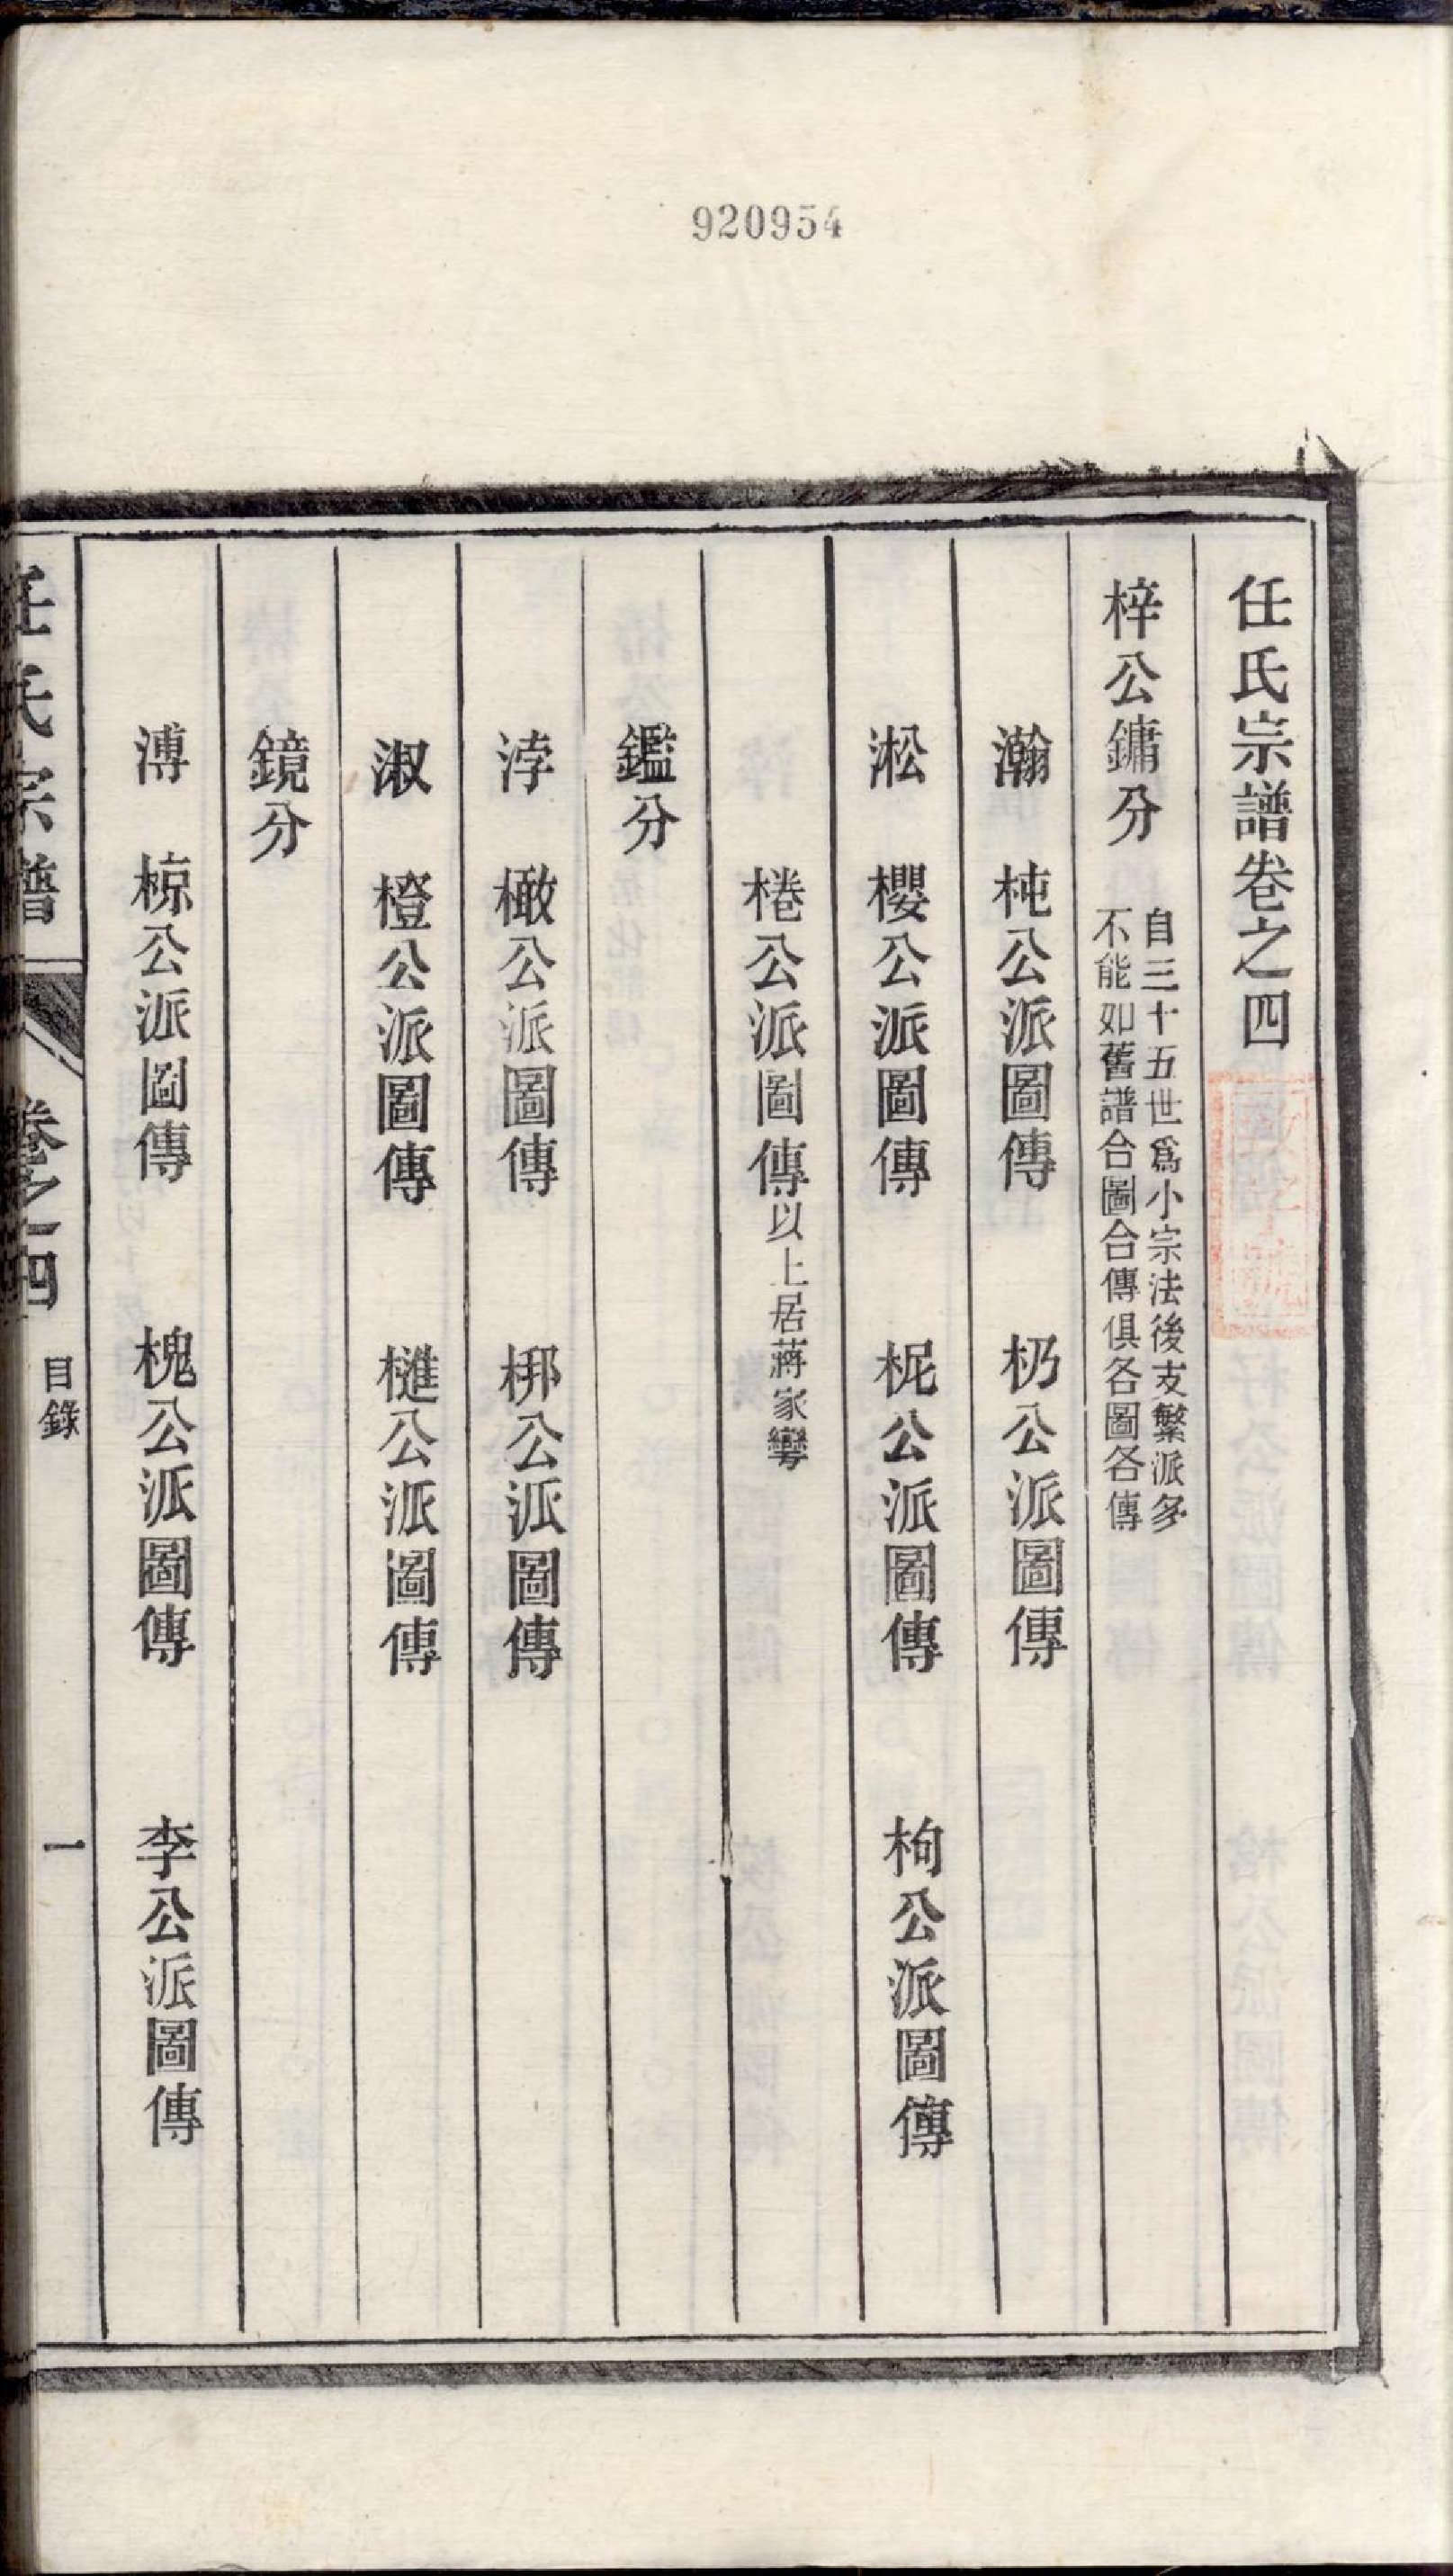 920954
任氏宗譜卷之四
梓公鏞分 自三十五世爲小宗法後支繁派多
不能如舊譜合圖合傳俱各圖各傳
瀚 杶公派圖傳 杤公派圖傳
淞 櫻公派圖傳 柅公派圖傳 枸公派圖傳
棬公派圖傳 以上居蔣家彎
鑑分
浡 橄公派圖傳 梆公派圖傳
淑 橙公派圖傳 槰公派圖傳
鏡分
溥 椋公派圖傳 槐公派圖傳 李公派圖傳
任氏宗譜 卷之四 目錄 一